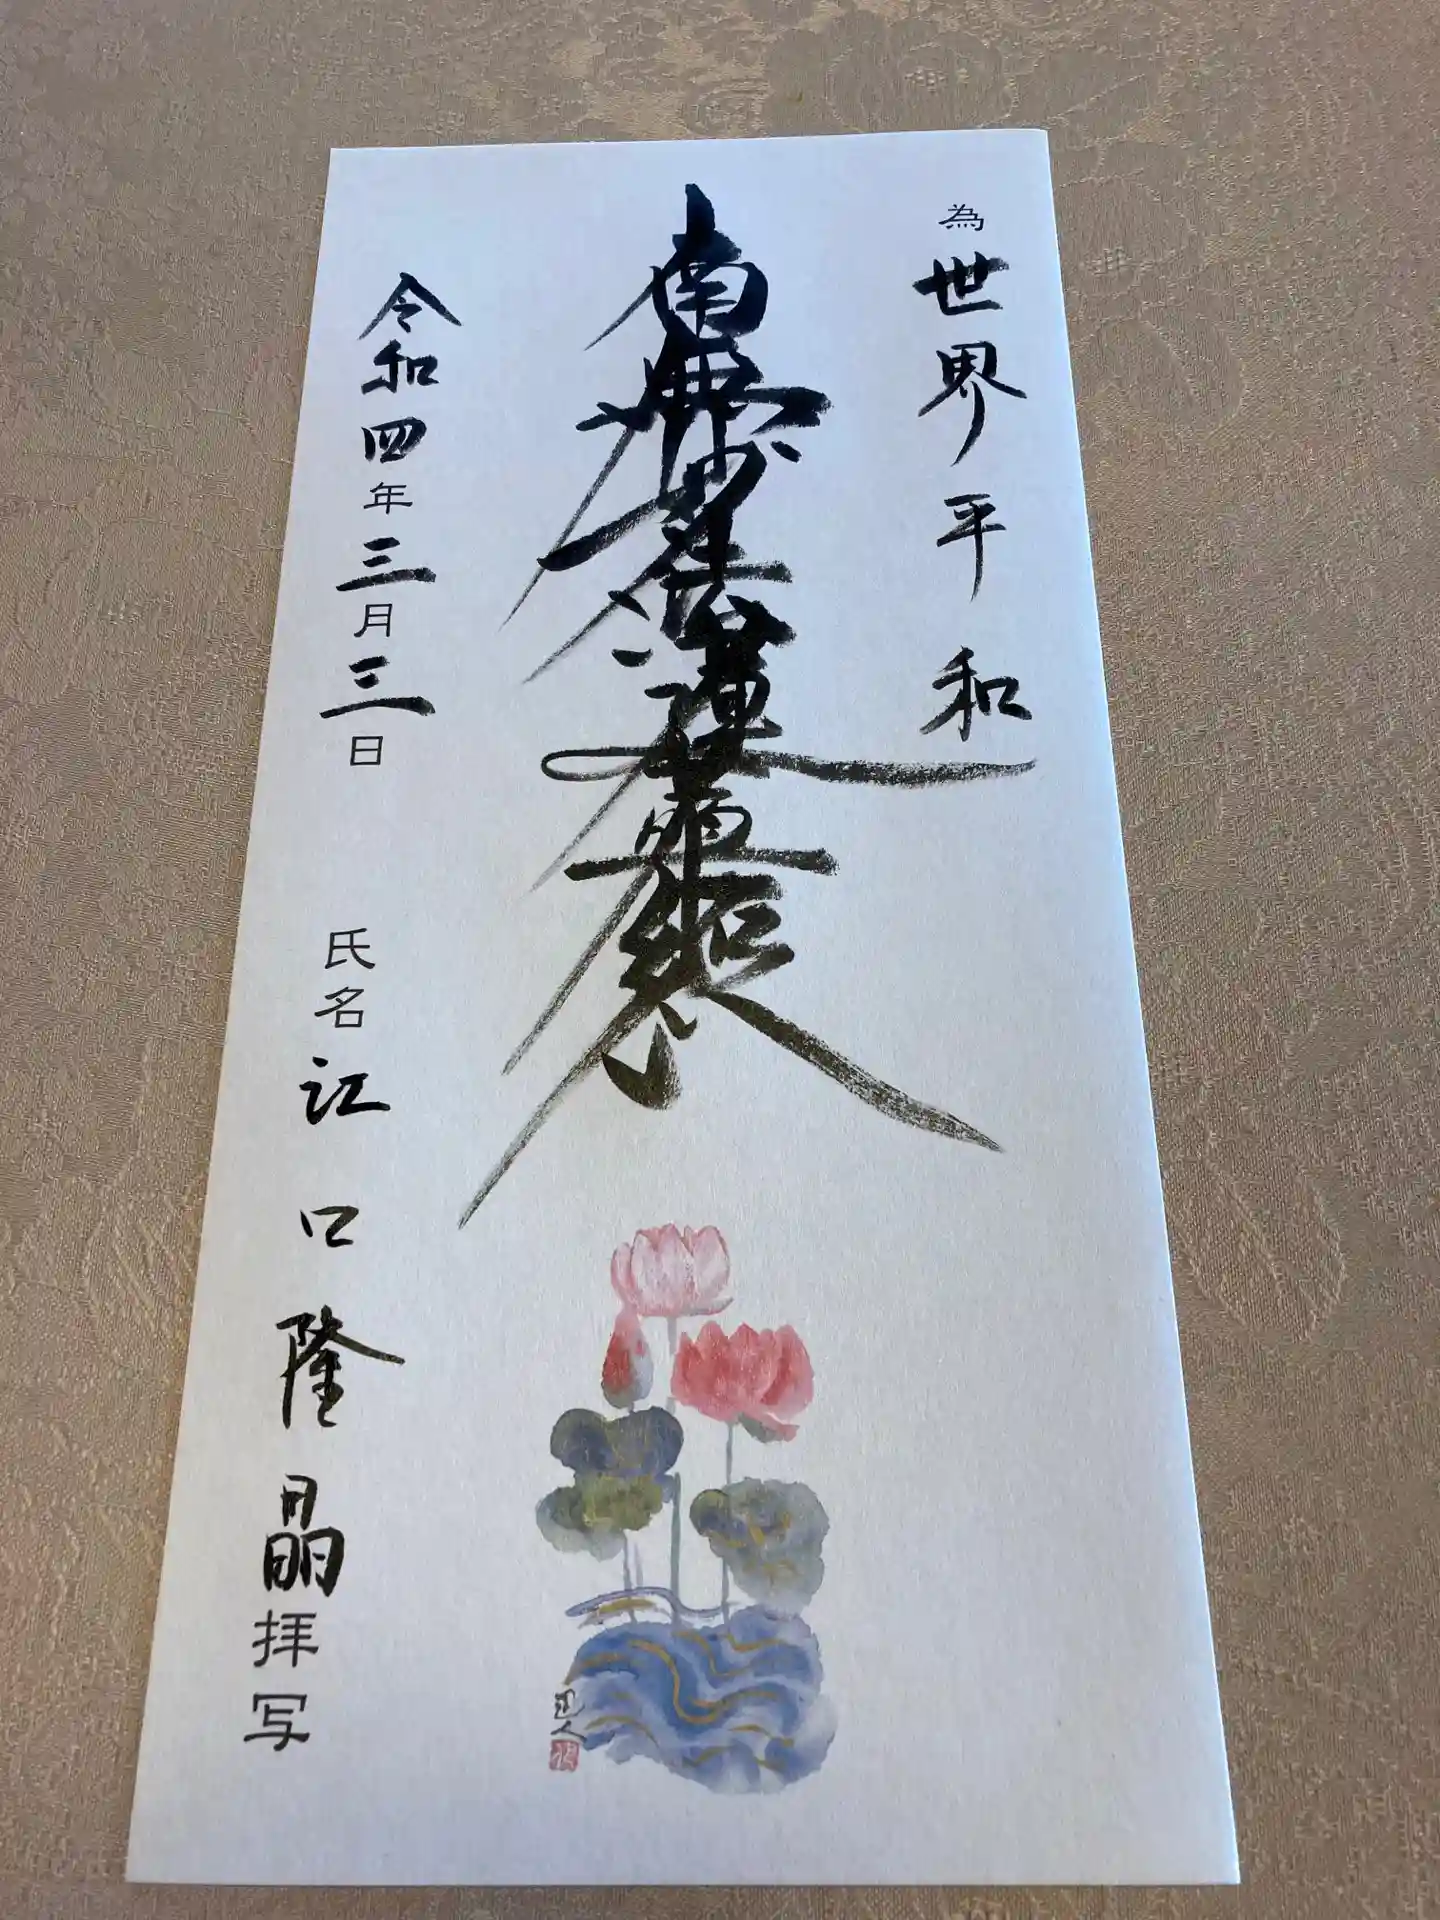 為世界平和
南無妙法蓮華経
令和四年三月三日
氏名江口隆晶拝写